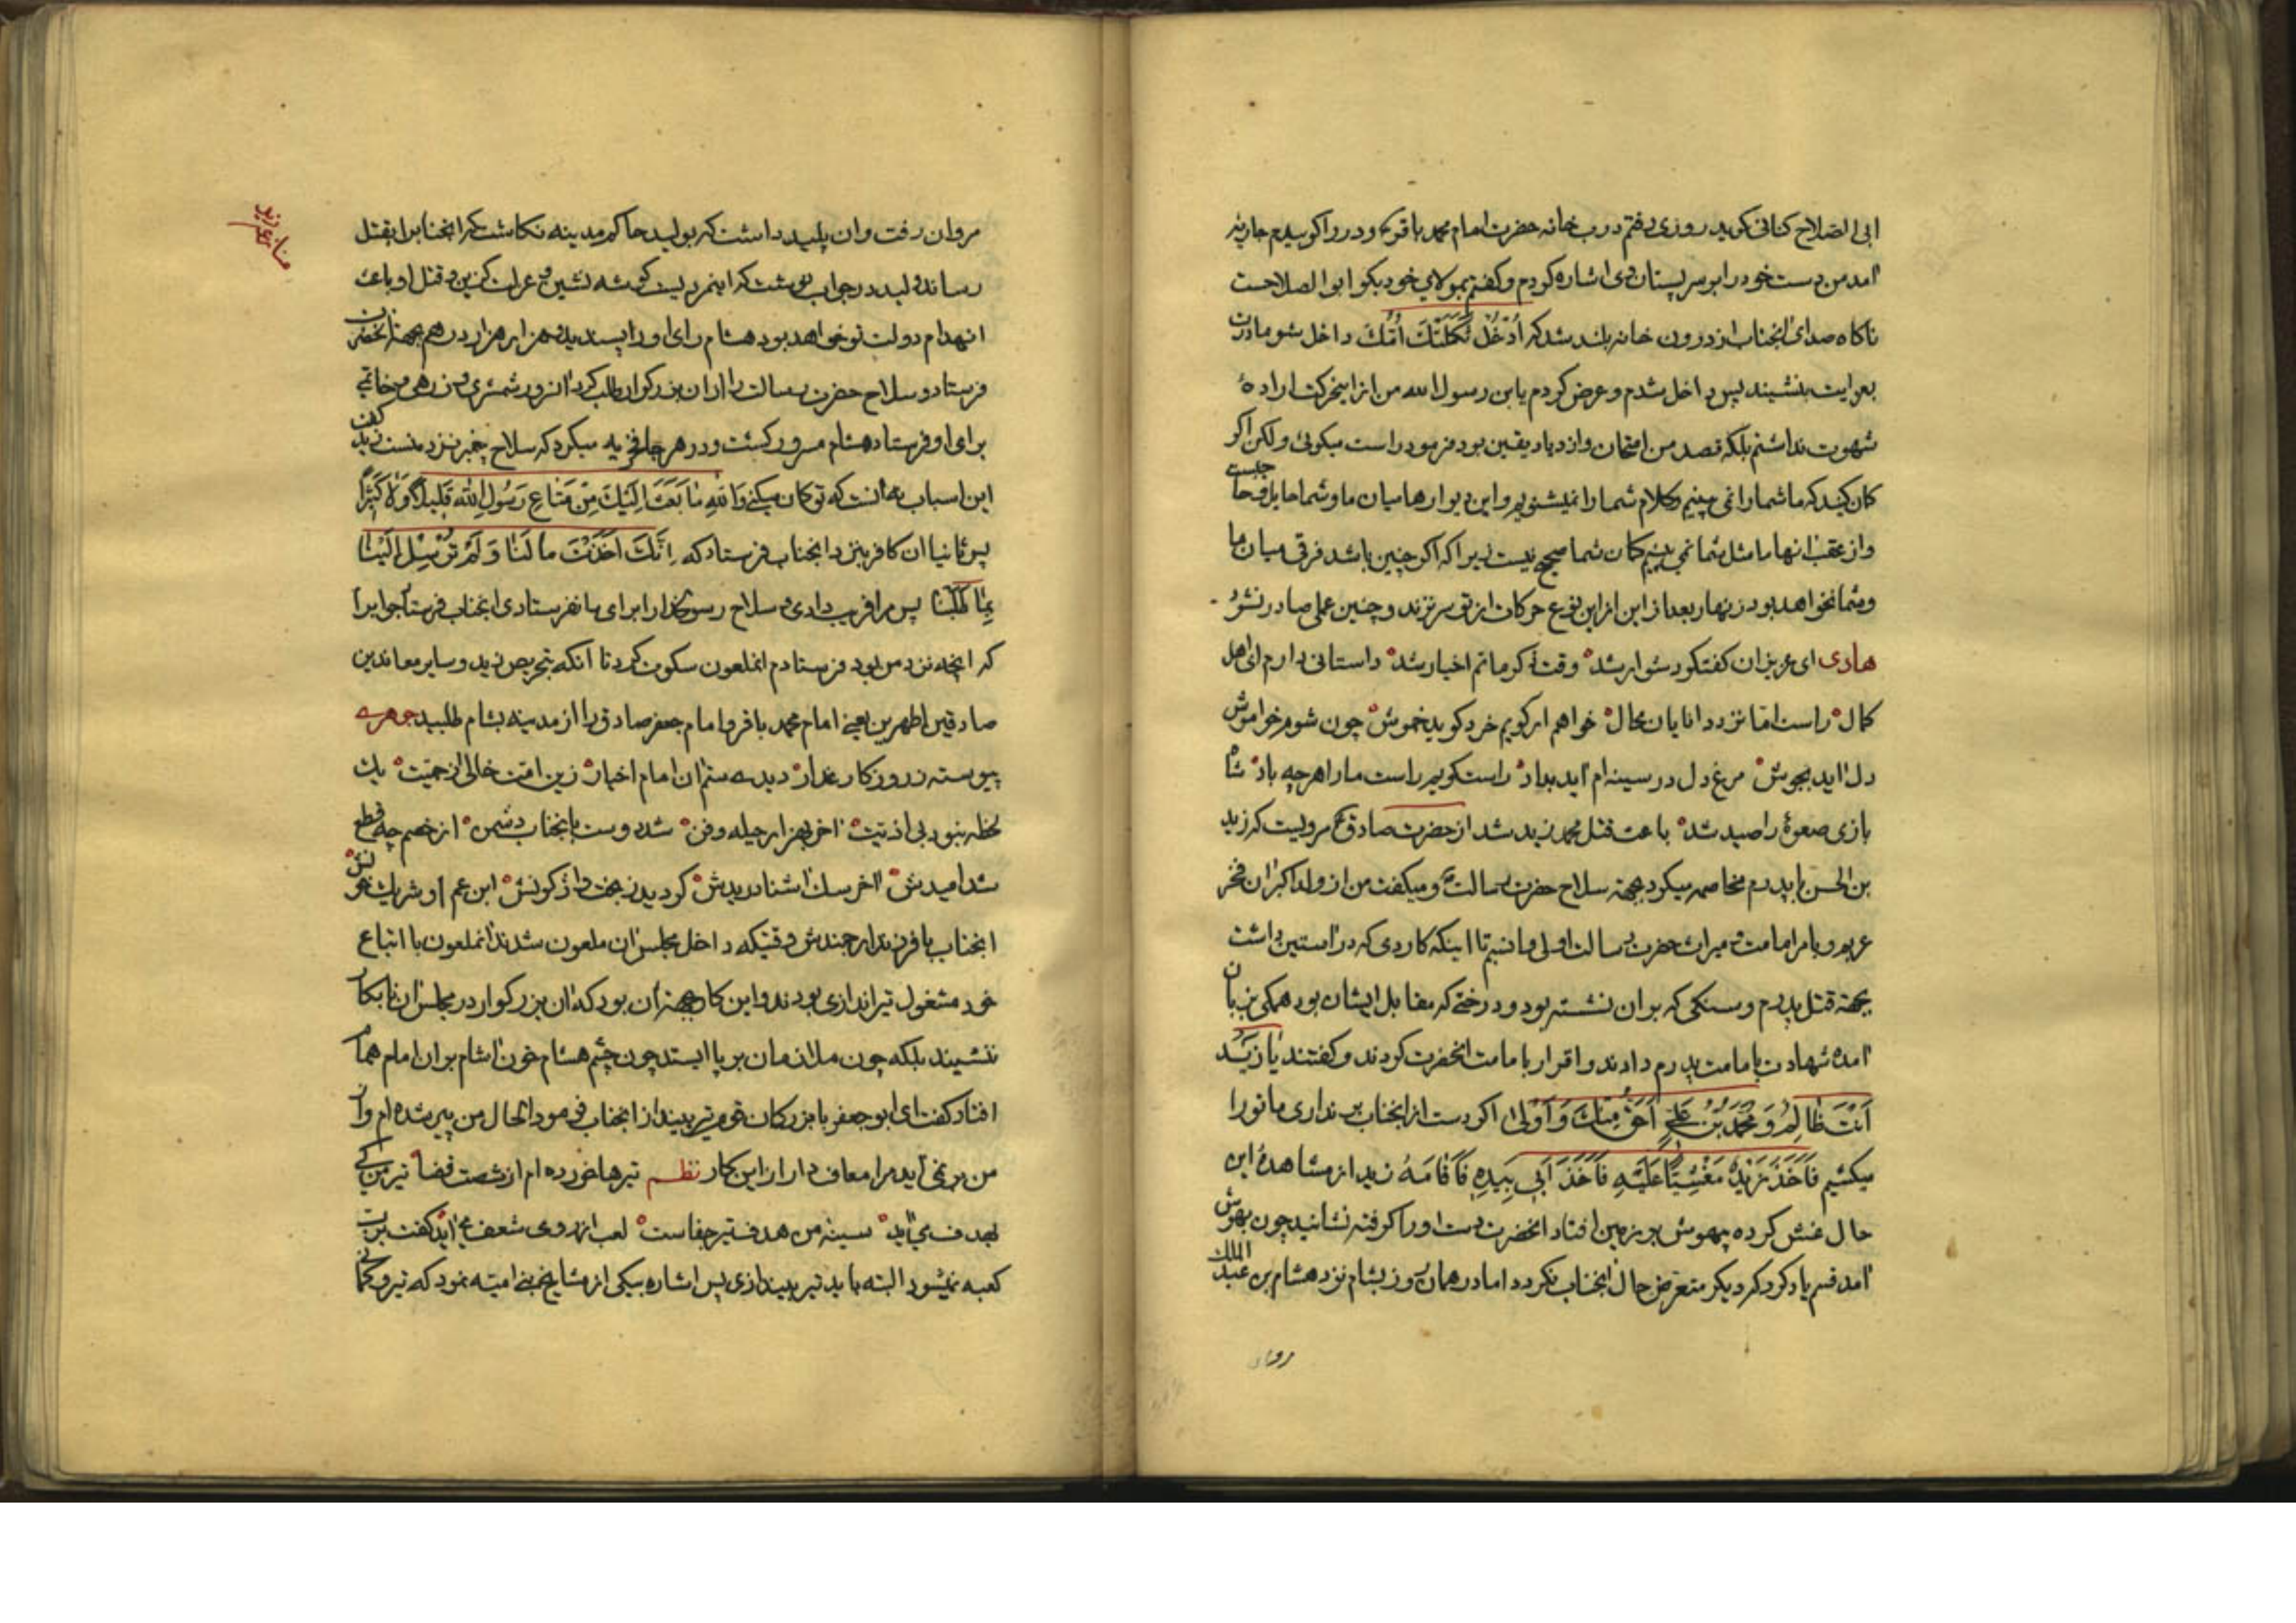 ابی الصلاح کنانی کوید روزی رفتم درب خانه حضرت امام محمد باقر ع و در را کوبیدم جاریه
آمد من دست خود را بر سر پستان وی اشاره کردم و کفتم بمولای خود بکو ابو الصلاحست
ناکاه صدای انجناب از درون خانه بلند شد که اُدْخُلْ ثَکَلَتْكَ اُمُّكَ داخل شو مادرت
بعزایت بنشیند پس داخل شدم و عرض کردم یابن رسول الله من از این حرکت ارادهٔ
شهوت نداشتم بلکه قصد من امتحان و ازدیاد یقین بود فرمود راست میکوئی و لکن اکر
کمان کنید که ما شما را نمی بینیم و کلام شما را نمیشنویم و این دیوارها میان ما و شما حایل و حاجبست
و از عقب انها ما مثل شما نمی بینیم کمان شما صحیح نیست زیرا که اکر چنین باشد فرقی میان ما
و شما نخواهد بود زنهار بعد از این از این نوع حرکات از تو سر نزند و چنین عملی صادر نشود
هادی ای عزیزان کفتکو دشوار شد وقت ذکر ماتم اخیار شد داستانی دارم ای اهل
کمال راست اما نزد دانایان محال خواهم ار کویم خرد کوید خموش چون شوم خواموش
دل آید بجوش مرغ دل در سینه ام آید بداد راست کویم راست ما را هر چه باد شاه
بازی صعوهٔ را صید شد باعث قتل محمد زید شد از حضرت صادق ع مرویست که زید
بن الحسن با پدرم مخاصمه میکرد بجهة سلاح حضرت رسالت ص و میکفت من از ولد اکبر ان فخر
عربم و بامر امامت و میراث حضرت رسالت اولی و انسبم تا اینکه کاردی که در آستین داشت
بجهة قتل پدرم و سنکی که بر ان نشسته بود و درختی که مقابل ایشان بود همکی بزبان
آمده شهادت بامامت پدرم دادند و اقرار بامامت انحضرت کردند و کفتند یا زَیْدُ
اَنْتَ ظالِمٌ وَ مُحَمَّدُ بْنُ عَلِیٍّ اَحَقُّ مِنْكَ وَ اَوْلی اکر دست از انجناب بر نداری ما تو را
میکشیم فَاَخَذَ زَیْدٌ مَغْشِیّاً عَلَیْهِ فَاَخَذَ اَبی بِیَدِهِ فَاَقامَهُ زید از مشاهدهٔ این
حال غش کرده بیهوش بر زمین افتاد انحضرت دست او را کرفته نشانید چون بهوش
آمد قسم یاد کرد که دیکر متعرض حال انجناب نکردد اما در همان روز بشام نزد هشام بن عبد الملك
مروان
مروان رفت و ان پلید داشت که بولید حاکم مدینه نکاشت که انجناب را بقتل
رساند ولید در جواب نوشت که اینمردیست کوشه نشین و عزلت کزین و قتل او باعث
انهدام دولت تو خواهد بود هشام رای او را پسندید و هزار هزار درهم بجهة انحضرت
فرستاد و سلاح حضرت رسالت را از ان بزرکوار طلب کرد آنسرور شمشیری و زرهی و خاتمی
برای او فرستاد هشام مسرور کشت و در هر جا فخریه میکرد که سلاح پیغمبر نزد منست زید کفت
این اسباب نه آنست که تو کمان میکنی وَ اللّٰهِ ما بَعَثَ اِلَیْكَ مِنْ مَتاعِ رَسُولِ اللّٰهِ قَلیلاً وَ لا کَثیراً
پس ثانیا ان کافر بنزد انجناب فرستاد که اِنَّكَ اَخَذْتَ مالَنا وَ لَمْ تُرْسِلْ اِلَیْنا
بِما طَلَبْنا پس مرا فریب دادی و سلاح رسولخدا را برای ما نفرستادی انجناب فرستاد جواب را
که انچه نزد من بود فرستادم انملعون سکوت کرد تا آنکه بتحریص زید و سایر معاندین
صادقین اطهرین یعنی امام محمد باقر و امام جعفر صادق را از مدینه بشام طلبید جوهری
پیوسته ز روزکار غدار دیده ستم ان امام اخیار زین امت خالی از حمیت یك
لحظه نبود بی اذیت آخر بهزار حیله و فن شد دوست بانجناب دشمن از خصم چه قطع
شد امیدش آخر سك آشنا دریدش کردید ز بخت واژکونش ابن عم او شریك خونش
انجناب با فرزند ارجمندش وقتیکه داخل مجلس ان ملعون شدند انملعون با اتباع
خود مشغول تیراندازی بودند و این کار بجهة آن بود که ان بزرکوار در مجلس ان نابکار
ننشیند بلکه چون ملازمان بر پا ایستد چون چشم هشام خون آشام بر ان امام همام
افتاد کفت ای ابو جعفر با بزرکان قوم تیر بینداز انجناب فرمود الحال من پیر شده ام و از
من بر نمی آید مرا معاف دار از این کار نظم تیرها خورده ام از شصت قضا تیر من کی
بهدف می آید سینه من هدف تیر جفاست لعب از روی شعف می آید کفت بربت
کعبه نمیشود البته باید تیر بیندازی پس اشاره بیکی از مشایخ بنی امیه نمود که تیر و کمانی